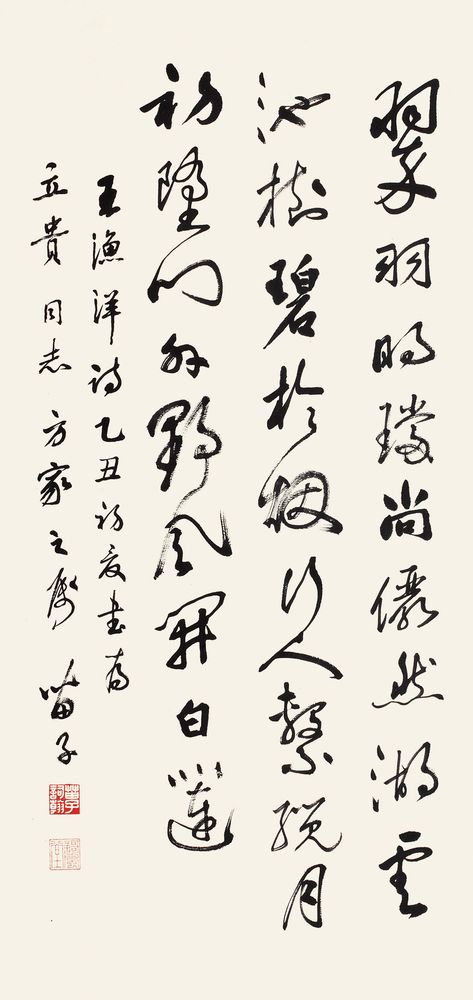 翠羽明璫尚儼然湖雲
池樹碧於烟行人繫纜月
初墮門外野風開白蓮
王漁洋詩乙丑初夏書為
立貴同志方家之屬 苗子
苗子詞翰